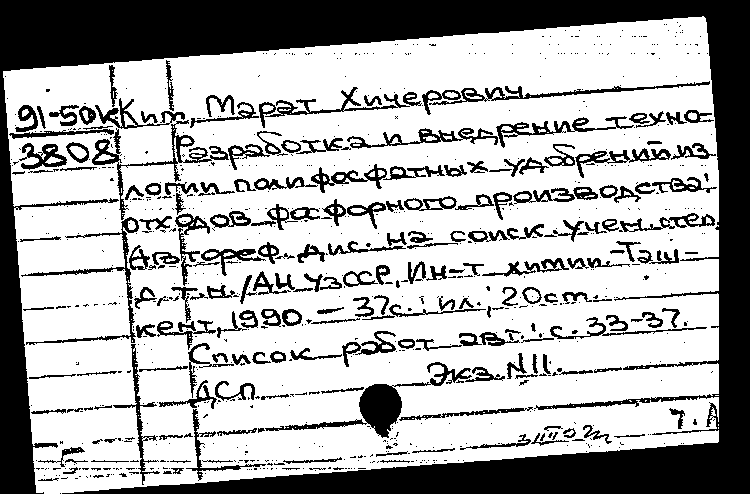 91-50к Ким, Марат Хичерович.
3808 Разработка и внедрение техно-
логии полифосфатных удобрений из
отходов фосфорного производства:
Автореф. дис. на соиск. учен. степ.
д.т.н. /АН УзССР, Ин-т химии.-Таш-
кент, 1990. - 37с.: ил.; 20см.
Список работ авт.: с. 33-37.
ДСП. Экз. N11.
7. А
5